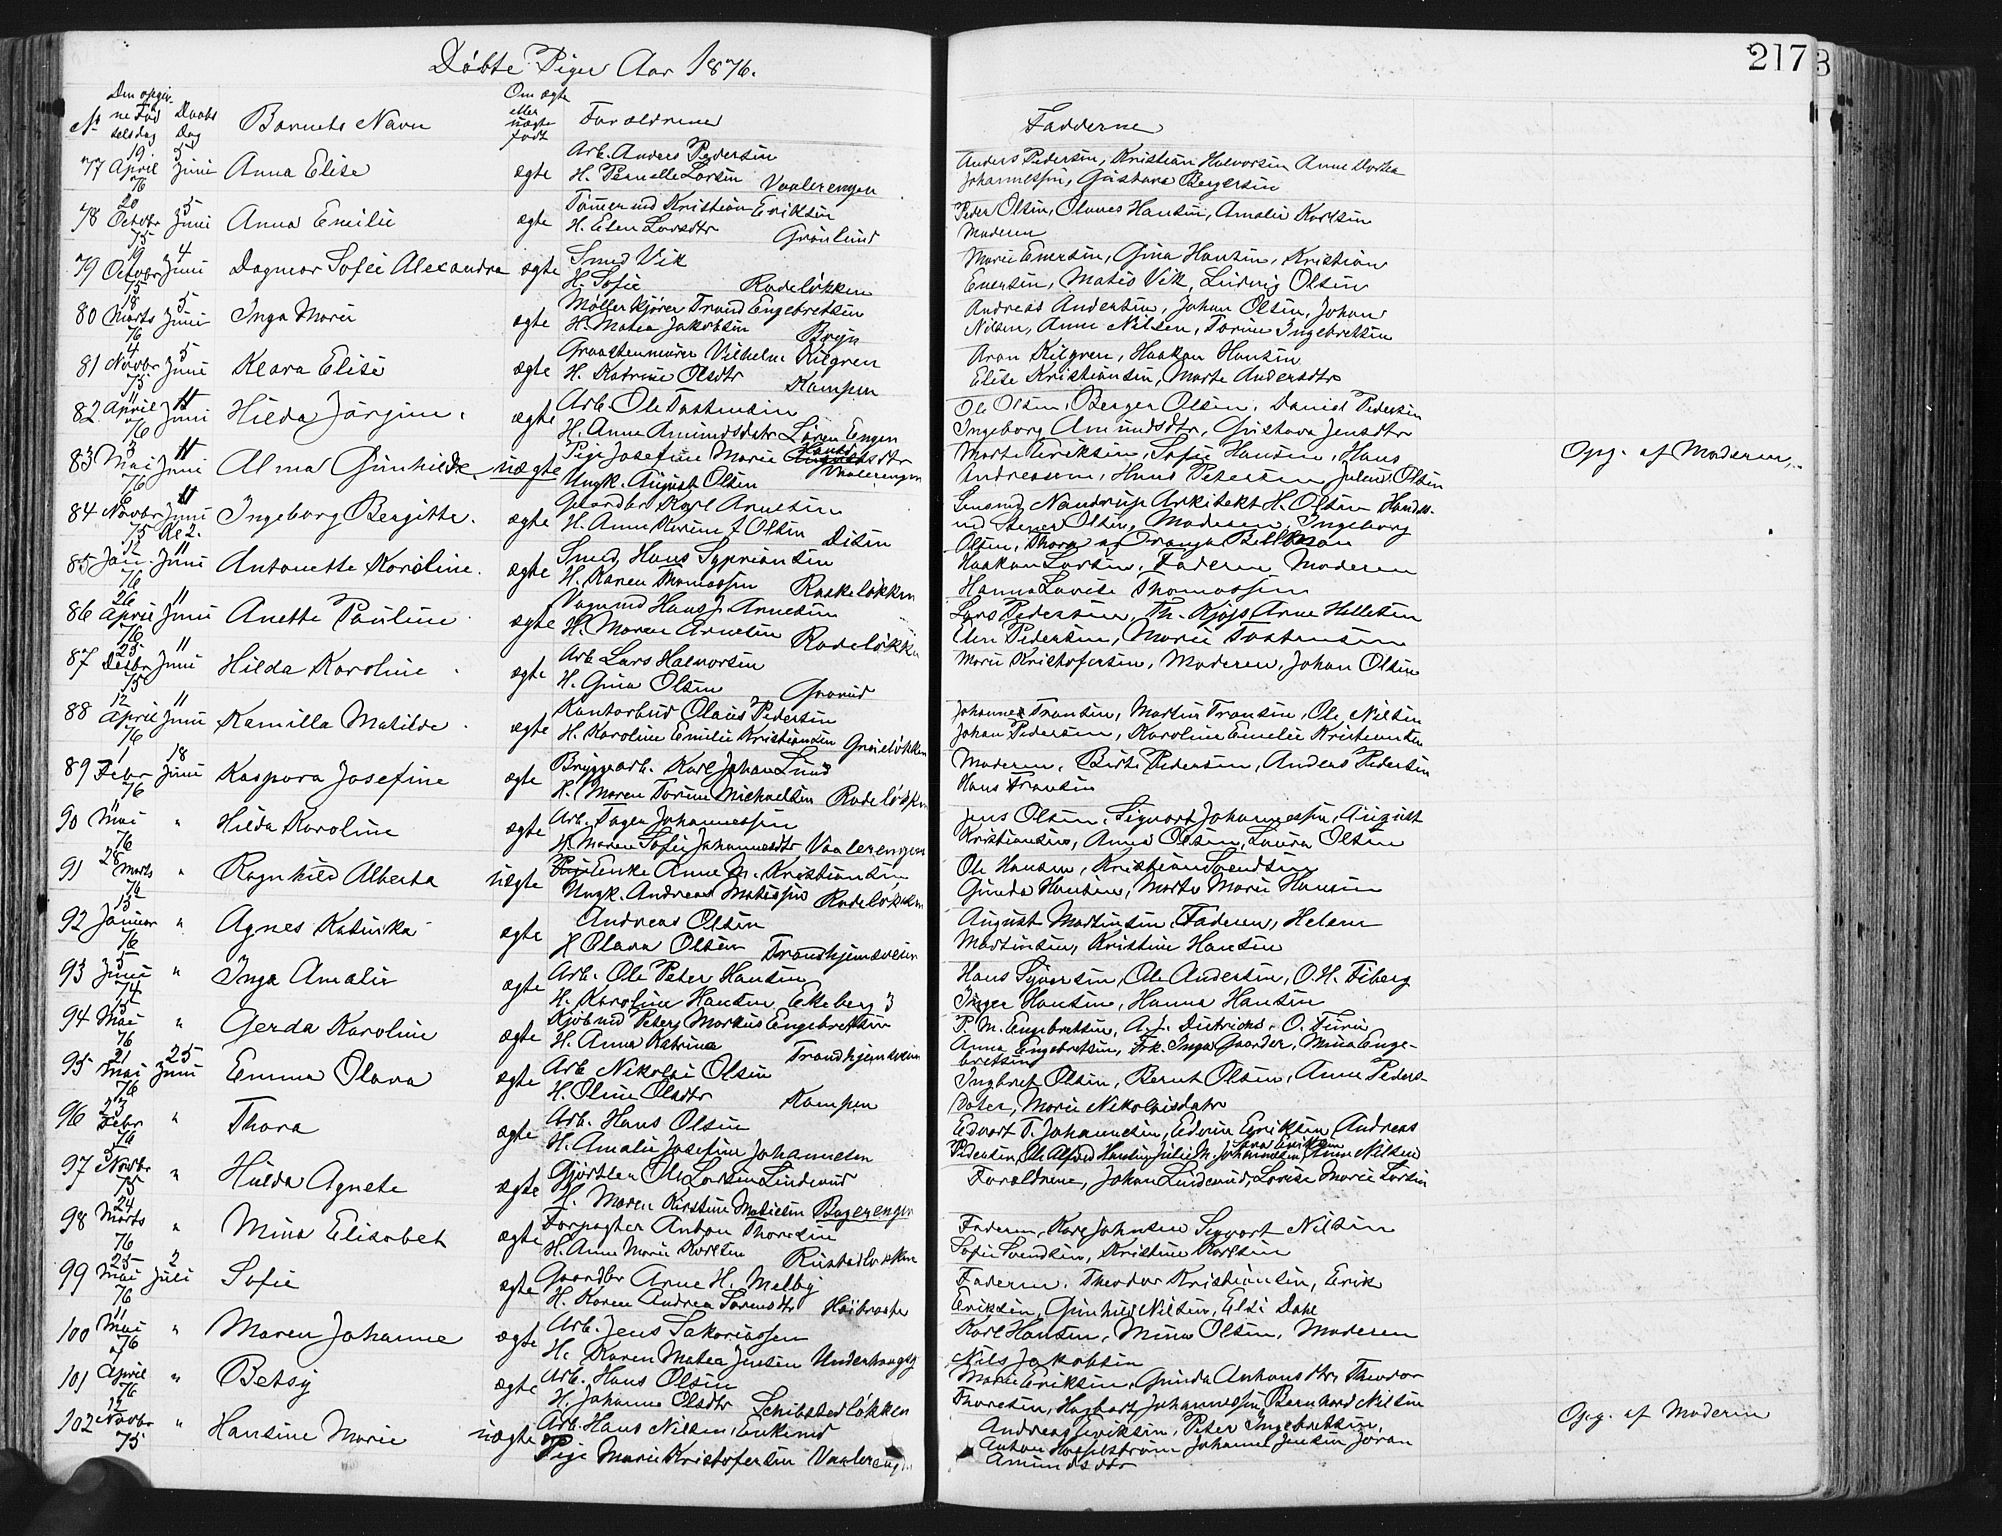 Døbte Piger Aar 1876.
217
No Den opgivne Fødselsdag Daabs Dag Barnets Navn Om ægte eller uægte født Forældrene Fadderne
77 19 April 76 5 Juni Anna Elise ægte Arb. Anders Pedersen
H. Pernelle Larsen Vaalerengen
Anders Pedersen, Kristian Halvorsen Anne Dorthea
Johannessen, Gustava Bergersen
78 20 Octobr 75 5 Juni Anna Emilie ægte Tømmermd Kristian Eriksen
H. Elen Larsdtr Grønlund
Peder Olsen, Olaves Hansen, Amalie Karlsen
Moderen
79 19 Octobr 75 4 Juni Dagmar Sofie Alexandra ægte Smed Vik
H. Sofie Rodeløkken
Marie Enersen, Gina Hansen, Kristian
Enersen, Matis Vik, Ludvig Olsen
80 18 Marts 76 5 Juni Inga Marie ægte Møllerkjører Trond Engebretsen
H. Matea Jakobsen Bryn
Andreas Andersen, Johan Olsen, Johan
Nilsen, Anne Nilsen, Torine Ingebretsen
81 4 Novbr 75 5 Juni Klara Elise ægte Graastensmurer Vilhelm Kilgren
H. Katrine Olsdtr Kampen
Aron Kilgren, Haakon Hansen
Elise Kristiansen, Marte Andersdtr
82 11 April 76 11 Juni Hilda Jørgine. ægte Arb. Ole Tostensen
H. Anne Amundsdatr Løren Engen
Ole Olsen, Berger Olsen, Daniel Pedersen
Ingeborg Amundsdtr, Gustava Jensdtr
83 3 Mai 76 11 Juni Alma Gunhilde uægte Pige Josefine Marie Hansdtr
Ungk. August Olsen Vaalerengen
Marte Eriksen, Sofie Hansen, Hans
Andreassen, Hans Petersen, Julius Olsen
Opg. af Moderen
84 6 Novbr 75 11 Juni Kl 2. Ingeborg Bergitte. ægte Gaardbr Karl Arnesen
H. Anne Karine f Olsen Disen
Lensmd Nandrup Arkitekt H. Olsen Handelsmd
Stener Olsen, Moderen, Ingeborg
Olsen, Thora og Oranja Bellman
85 12 Jan. 76 11 Juni Antonette Karoline. ægte Smed Hans Syprianson
H. Karen Thomassen Rodeløkken
Haakon Larsen, Faderen Moderen
Hanna Lovise Thomassen
86 26 April 76 11 Juni Anette Pauline ægte Vognmd Hans J. Arnesen
H. Maren Arnesen Rodeløkken
Lars Pedersen, Th. Kjøss Arne Hellesen
Elen Pedersen, Marie Tostensen
87 25 Desbr 75 11 Juni Hilda Karoline ægte Arb Lars Halvorsen
H. Gina Olsen Grorud
Marie Kristofersen, Moderen, Johan Olsen
88 12 April 76 11 Juni Kamilla Matilde ægte Kontorbud Olaus Pedersen
H. Karoline Emilie Kristiansen Grüneløkken
Johannes Transen, Martin Transen, Ole Nilsen
Johan Pedersen, Karoline Emelie Kristiansen
89 1 Febr 76 18 Juni Kaspara Josefine ægte Bryggearb. Karl Johan Lund
H. Maren Torine Michaelsen Rodeløkken
Moderen, Birte Pedersen, Anders Pedersen
Hans Fransen
90 11 Mai 76 " Hilda Karoline ægte Arb. Tager Johannessen
H. Maren Sofie Johannesdtr Vaalerengen
Jens Olsen, Sigvart Johannessen, August
Kristiansen, Anna Olsen, Laura Olsen
91 28 Marts 76 " Ragnhild Alberta uægte Enke Anne M. Kristiansen
Ungk. Andreas Matissen Rodeløkken
Ole Hansen, Kristian Svendsen
Gunda Hansen, Marte Marie Hansen
92 15 Januar 76 " Agnes Katinka ægte Andreas Olsen
H Olava Olsen Trondhjemsveien
August Martinsen, Faderen, Helene
Martinsen, Kristine Hansen
93 5 Juni 74 " Inga Amalie ægte Arb. Ole Peter Hansen
H. Karoline Hansen Ekeberg 3
Hans Syversen, Ole Andersen, O. H. Fiberg
Inger Hansen, Hanna Hansen
94 15 Mai 76 " Gerda Karoline ægte Kjøbmd Peter Markus Engebretsen
H. Anna Katrina Trondhjemsveien
P. M. Engebretsen, A. J. Dietrichs, O. Furu
Anna Engebretsen, Frk. Inga Gaarder, Mina Engebretsen
95 21 Mai 76 25 Juni Emma Olava ægte Arb Nikolai Olsen
H. Oline Olsdtr Kampen
Ingbret Olsen, Bernt Olsen, Anne Pedersdater,
Marie Nikolaisdatr
96 23 Febr 76 " Thora ægte Arb. Hans Olsen
H. Amalie Josefine Johannesen
Edvart T. Johannesen, Edvin Eriksen Andreas
Pedersen, Ole Alfred Hansen, Julie M. Johannessen, Anne Nilsen
97 3 Novbr 75 " Hulda Agnete ægte Gjørtler Ole Larsen Linderud
H. Maren Kirstine Matisen Bagerengen
Forældrene, Johan Linderud, Lovise Marie Larsen
98 24 Marts 76 " Mina Elisabet ægte Forpagter Anton Thoresen
H. Anne Marie Karlsen
Faderen, Karl Johnsen Sigvart Nilsen
Sofie Svendsen, Kristine Karlsen
99 25 Mai 76 2 Juli Sofie ægte Gaardbr Arne H. Melby
H. Karen Andrea Sørensdtr Høibraaten
Faderen, Theodor Kristiansen, Erik
Eriksen, Gunhild Nilsen, Elsi Dahl
100 11 Mai 76 " Maren Johanne ægte Arb. Jens Sakariassen
H. Karen Matea Jensen Underhaugsg
Karl Hansen, Mina Olsen, Moderen
Nils Jakobsen
101 April 76 " Betsy ægte Arb. Hans Olsen
H. Johanne Olsdtr Schibstedløkken
Marie Eriksen, Gunda Antonsdtr, Theodor
Thoresen, Hagbart Johannessen, Bernhard Nilsen
102 12 Novbr 75 " Hansine Marie uægte Arb. Hans Nilsen, Enkemd
Pige Marie Kristofersen Vaalereng
Andreas Eriksen, Peter Ingebretsen,
Anton Johanne Jensen Jøran
Amundsdtr
Opg. af Moderen